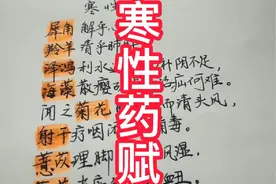 寒性
犀角解乎
羚羊清乎肺
泽泻利水 补阴不足，
海藻散瘿 疝何难。
闻之菊花 而清头风，
射干疗咽 毒。
薏苡理脚 风湿，
寒性药赋